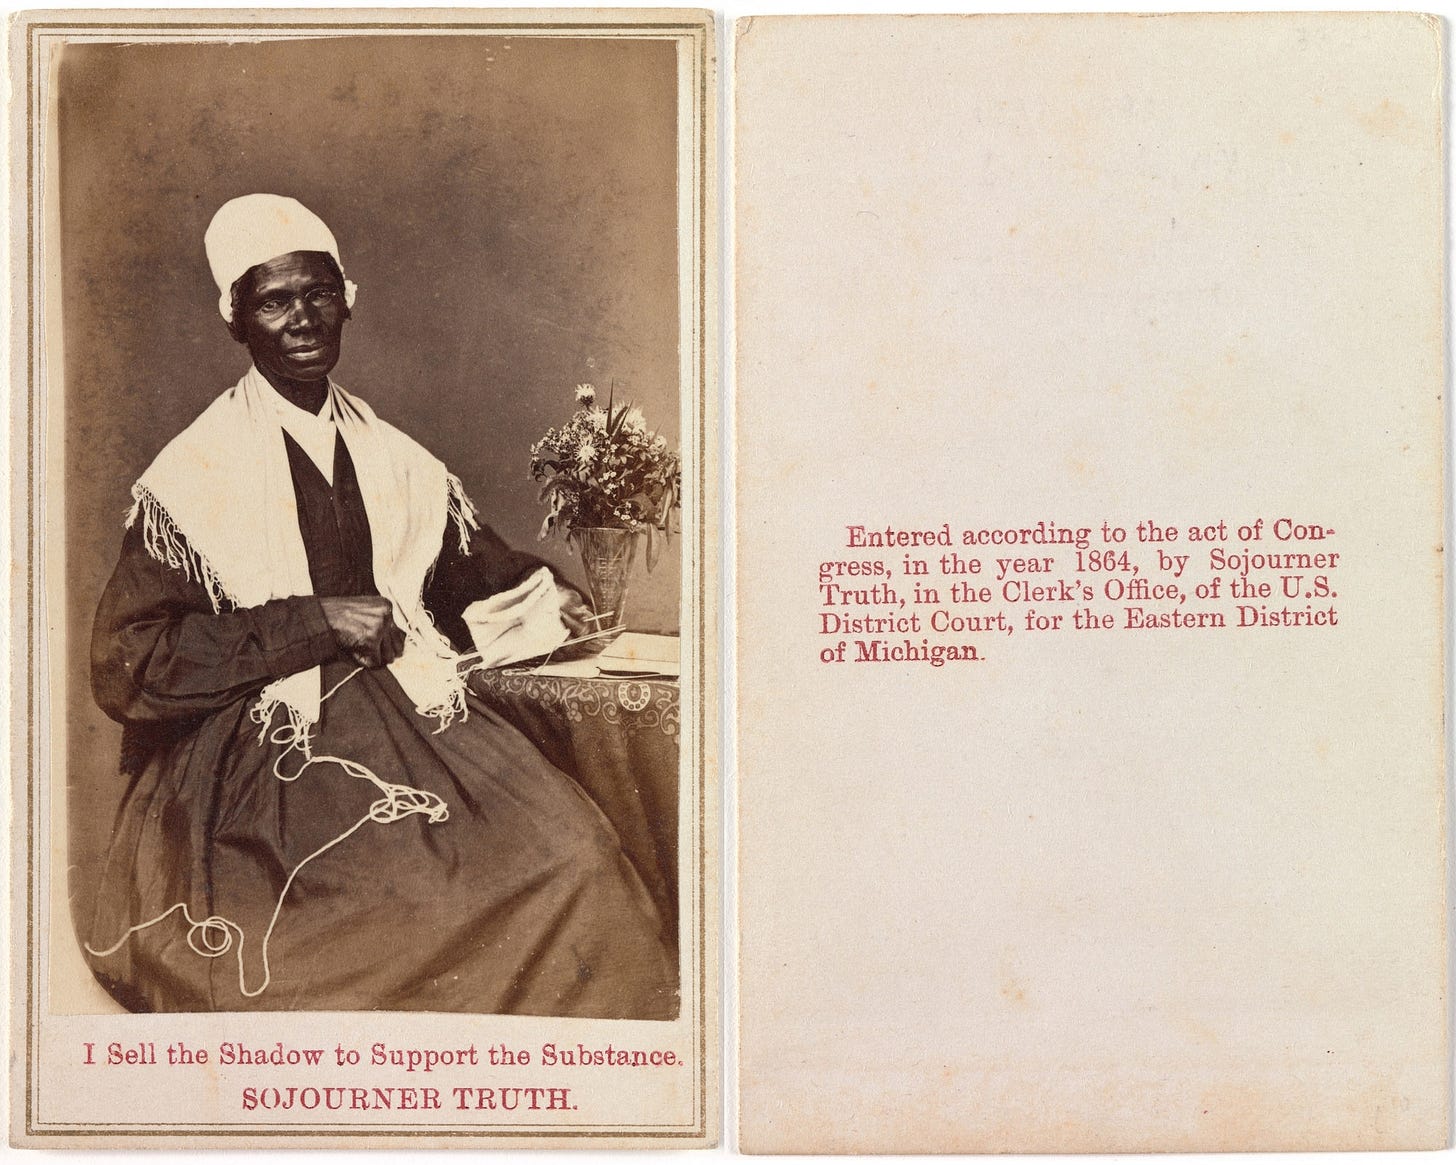 I Sell the Shadow to Support the Substance.
SOJOURNER TRUTH.
Entered according to the act of Con-
gress, in the year 1864, by Sojourner
Truth, in the Clerk's Office, of the U.S.
District Court, for the Eastern District
of Michigan.